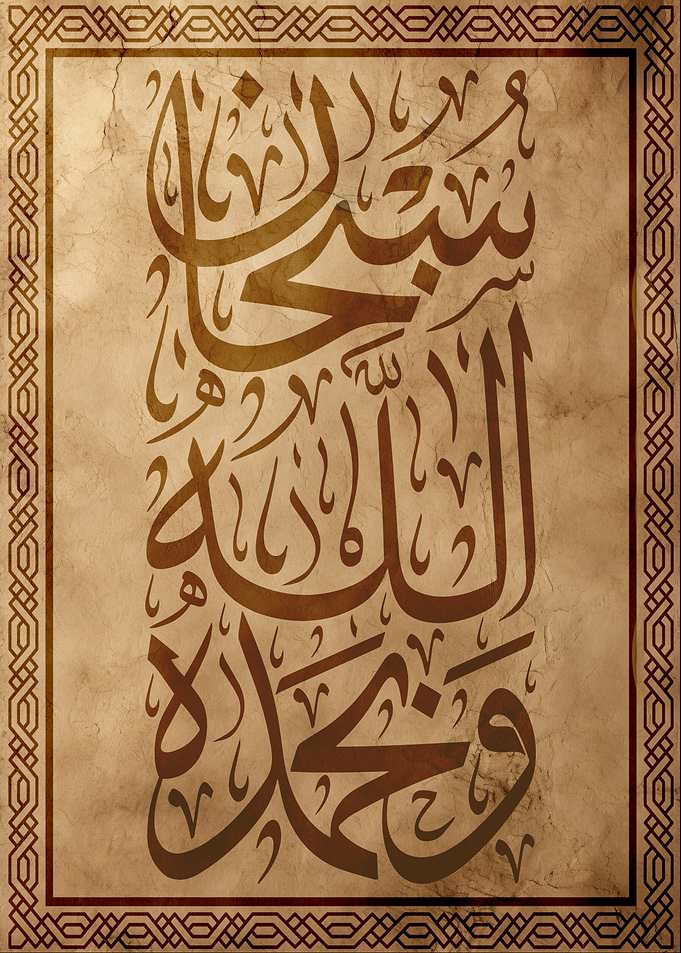 سُبْحَانَ
اللَّهِ
وَبِحَمْدِهِ